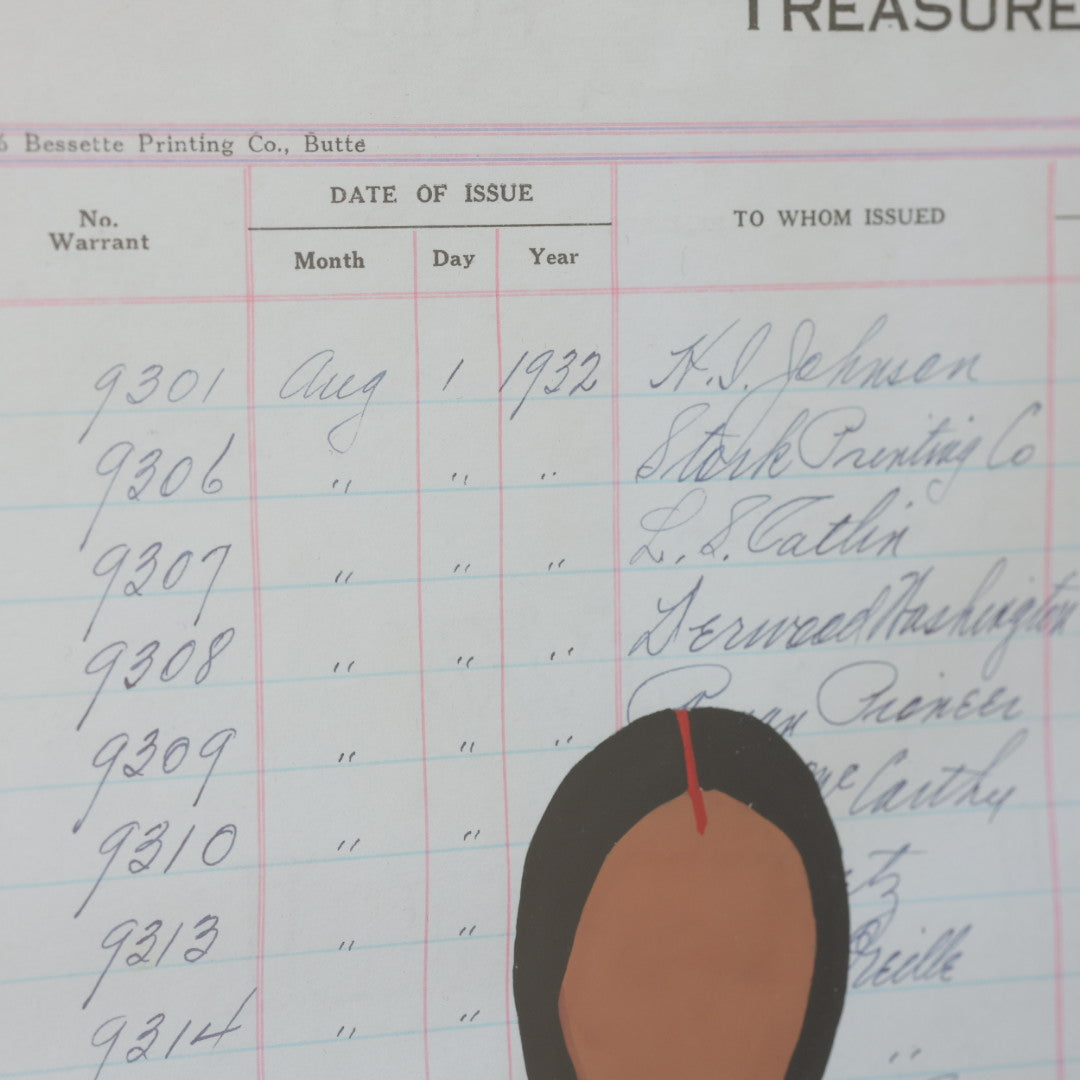 TREASURE
6 Bessette Printing Co., Butte
No. Warrant
DATE OF ISSUE
Month Day Year
TO WHOM ISSUED
9301 Aug 1 1932 H. I. Johnson
9306 " " " Stork Printing Co
9307 " " " L. S. Catlin
9308 " " " Derwood Washington
9309 " " " Pioneer
9310 " " Mc Carthy
9313 " " tz
9314 " " Oreille
"